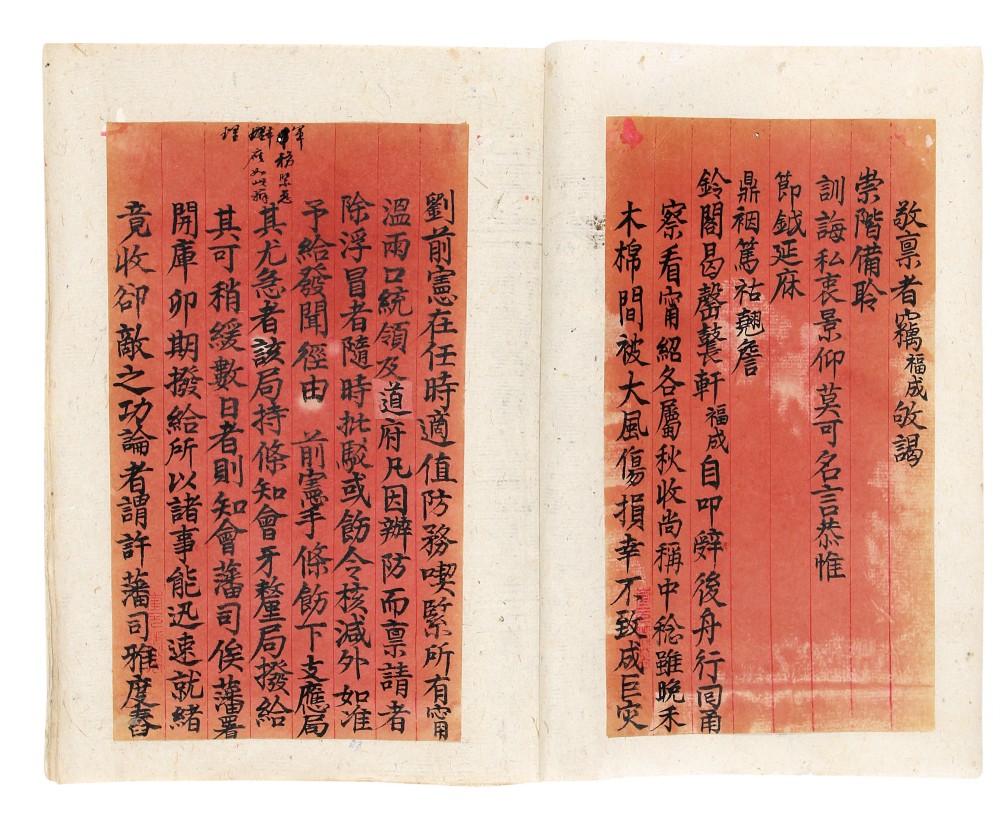 敬禀者竊福成敬謁
崇階備聆
訓誨私衷景仰莫可名言恭惟
節鉞延庥
鼎祵篤祜翹詹
鈴閣曷罄蘉軒福成自叩辤後舟行回甬
察看甯紹各屬秋收尚稱中稔雖晚禾
木棉間被大風傷損幸不致成巨灾
劉前憲在任時適值防務喫緊所有甯
溫兩口統領及道府凡因辦防而禀請者
除浮冒者隨時批駁或飭令核減外如准
予給發聞徑由 前憲手條飭下支應局
其尤急者該局持條知會牙釐局撥給
其可稍緩數日者則知會藩司俟藩署
開庫卯期撥給所以諸事能迅速就緒
竟收卻敵之功論者謂許藩司雅度舂